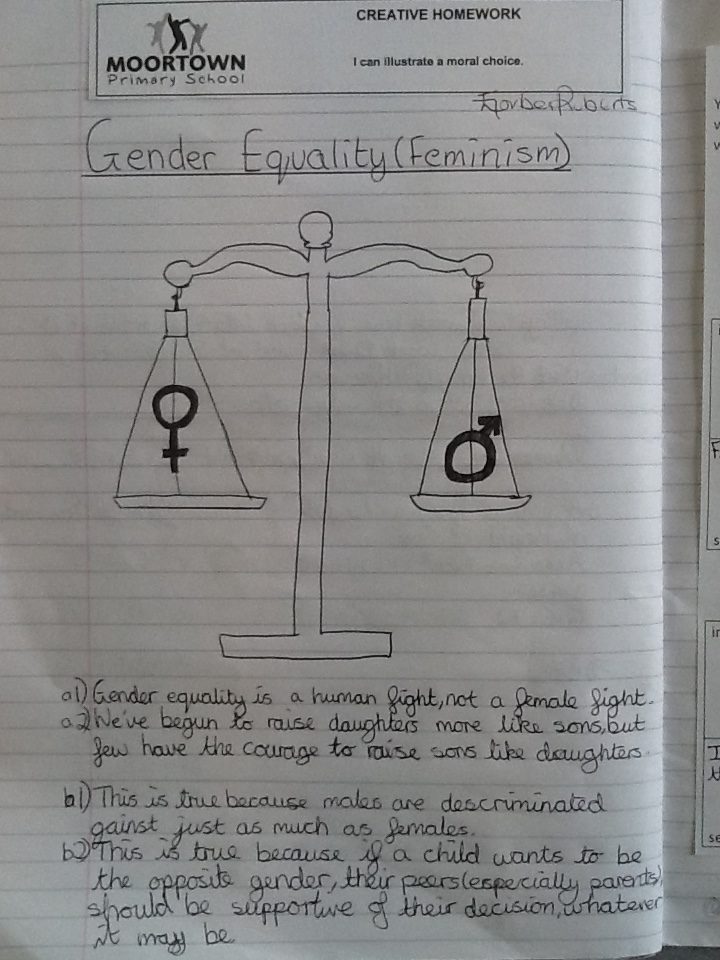 CREATIVE HOMEWORK
MOORTOWN
Primary School
I can illustrate a moral choice.
Gender Equality (Feminism)
a1) Gender equality is a human fight, not a female fight.
a2) We've begun to raise daughters more like sons, but
few have the courage to raise sons like daughters.
b1) This is true because males are descriminated
gainst just as much as females.
b2) This is true because if a child wants to be
the opposite gender, their peers (especially parents)
should be supportive of their decision, whatever
it may be.